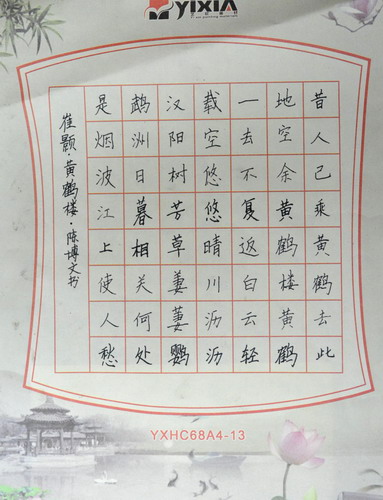 YIXIA
昔人已乘黄鹤去此
地空余黄鹤楼黄鹤
一去不复返白云轻
载空悠悠晴川沥沥
汉阳树芳草萋萋鹦
鹉洲日暮相关何处
是烟波江上使人愁
崔颢·黄鹤楼·陈博文书
YXHC68A4-13